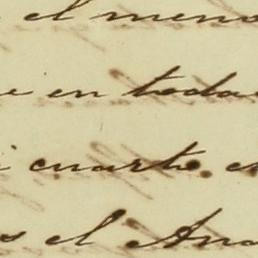 el meno
e en toda
i cuarto. e
s el Ana